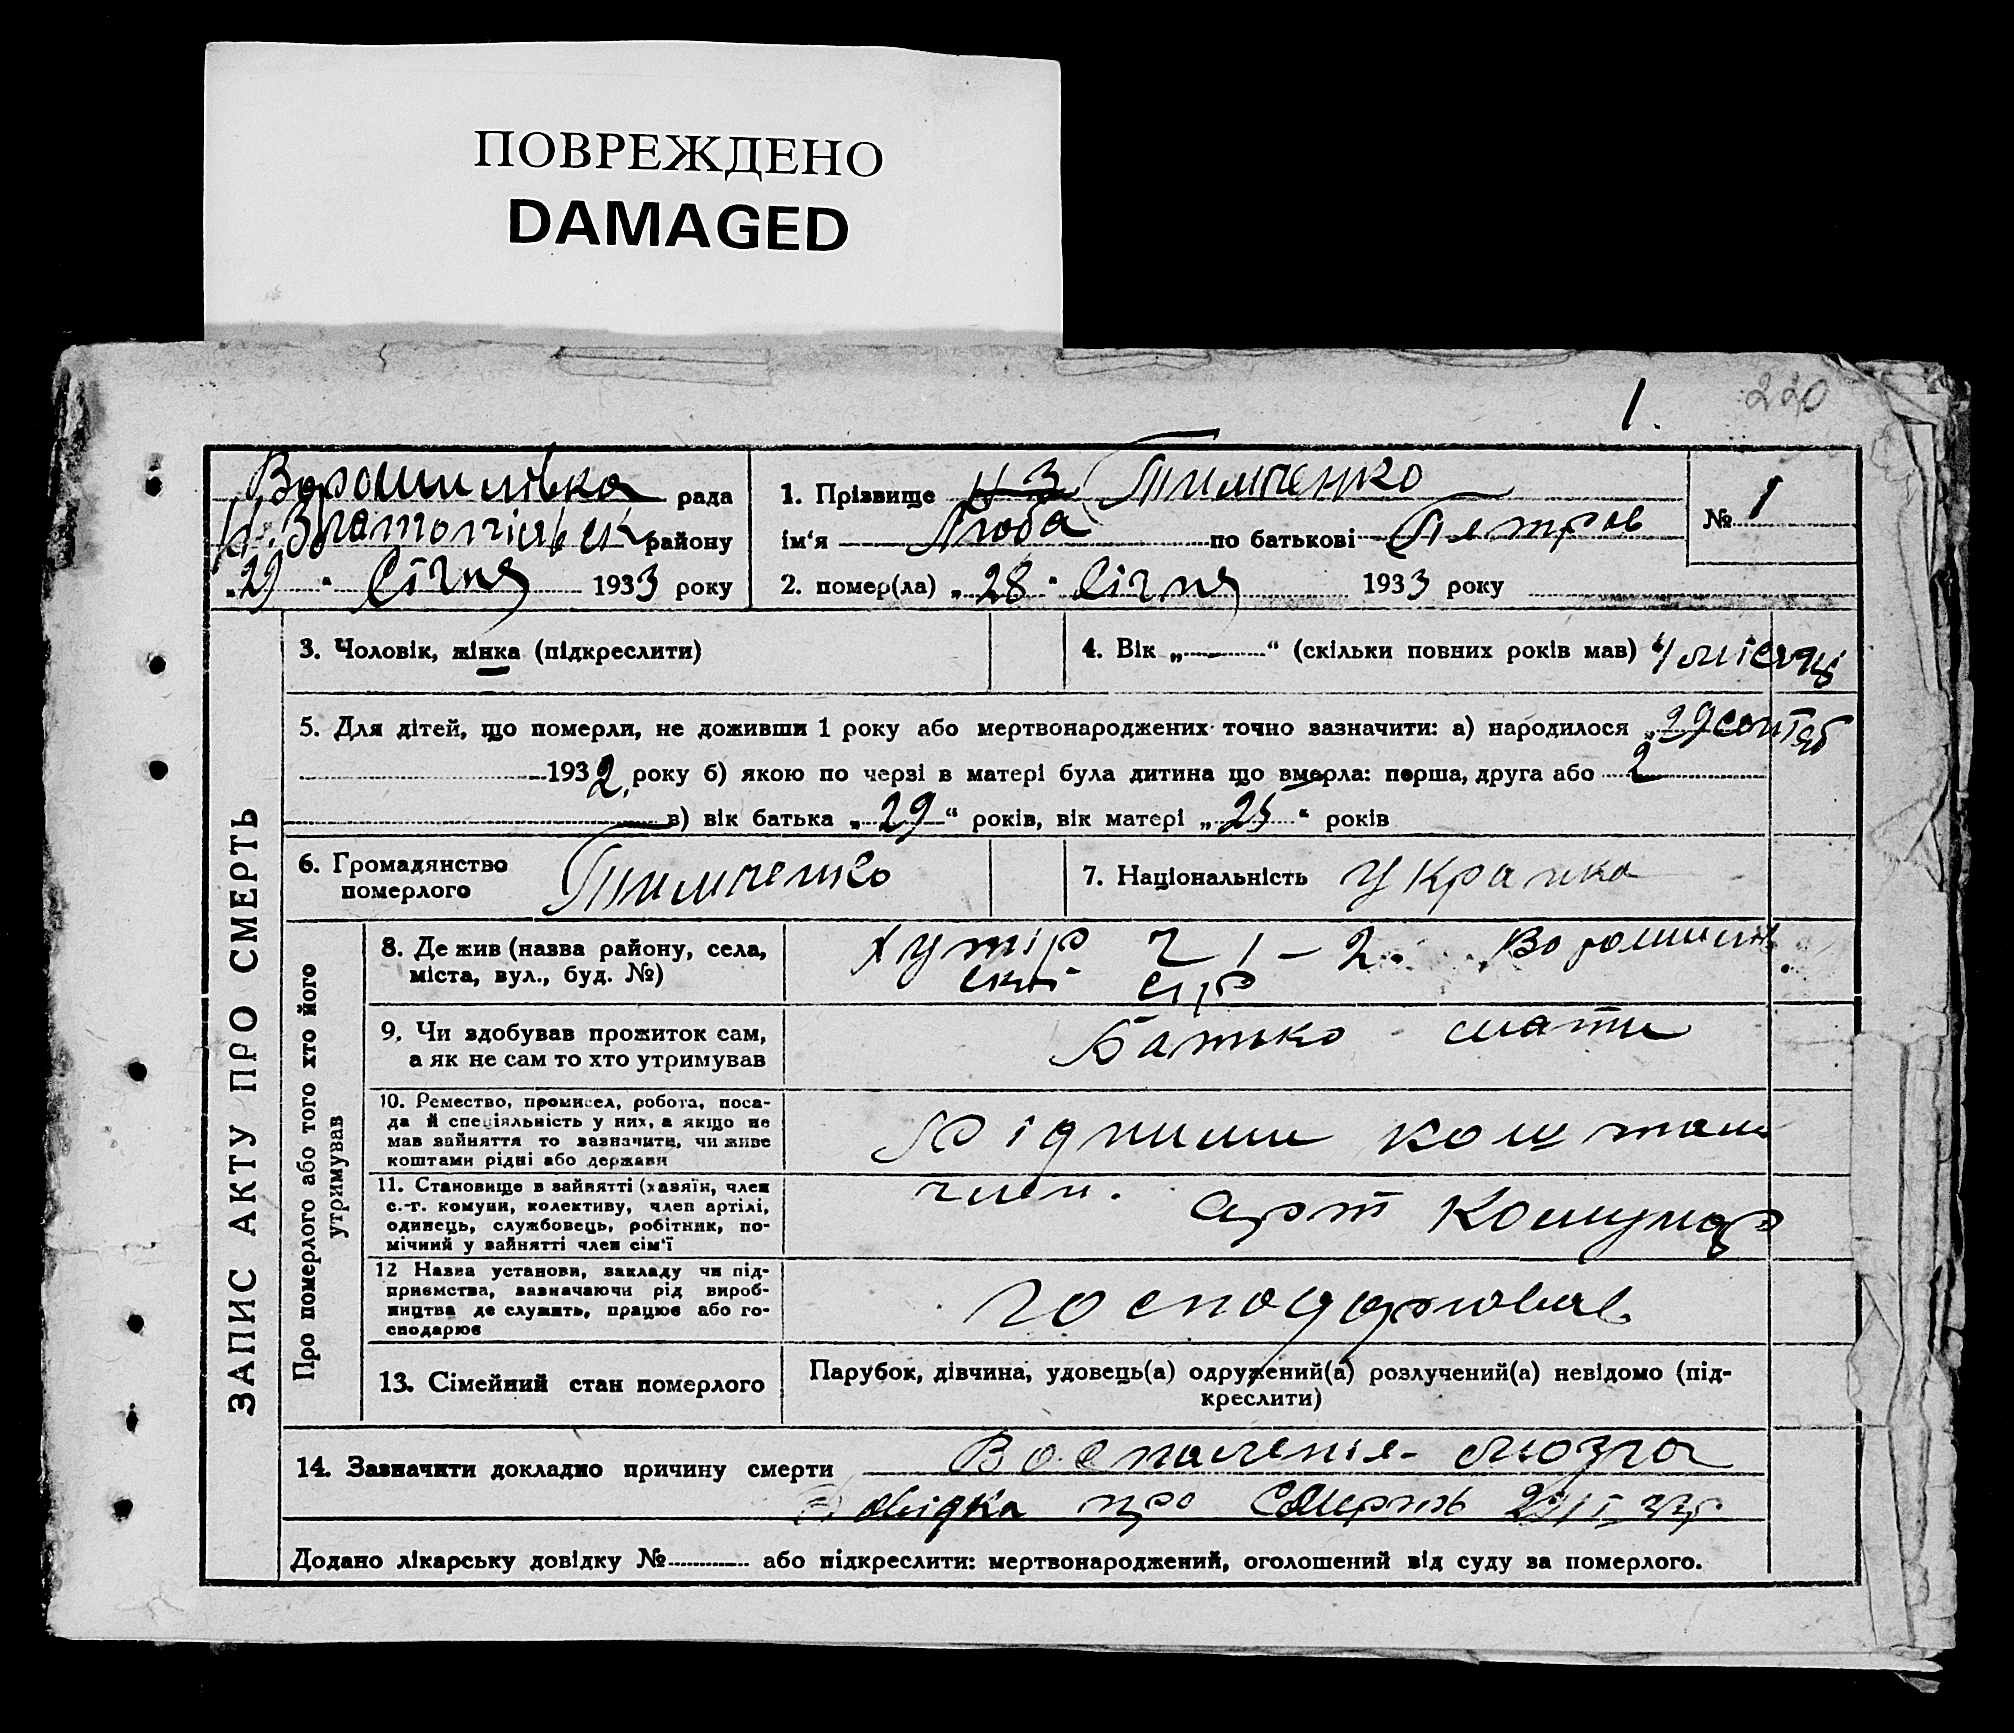 ПОВРЕЖДЕНО
DAMAGED
1. 220
Ворошилівка рада
Н. Златопільськ району
„29“ Січня 1933 року
1. Прізвище Тимченко
ім‘я Люба по батькові Петров
№ 1
2. помер(ла) „28“ Січня 1933 року
ЗАПИС АКТУ ПРО СМЕРТЬ
3. Чоловік, жінка (підкреслити)
4. Вік „ “ (скільки повних років мав) 4 місяці
5. Для дітей, що померли, не доживши 1 року або мертвонароджених точно зазначити: а) народилося „29 сентяб
1932 року б) якою по черзі в матері була дитина що вмерла: перша, друга або 2
в) вік батька „29“ років, вік матері „25“ років
6. Громадянство
померлого
Тимченко
7. Національність Украінка
Про померлого або того хто його
утримував
8. Де жив (назва району, села,
міста, вул., буд. №)
Хутір 2 1-2. Ворошилів
ској с/р
9. Чи здобував прожиток сам,
а як не сам то хто утримував
Батько мати
10. Ремество, промисел, робота, поса-
да й спеціяльність у них, а якщо не
мав зайняття то зазначити, чи живе
коштами рідні або держави
Рідними коштами
11. Становище в зайнятті (хазяїн, член
с.-г. комуни, колективу, член артілі,
одинець, службовець, робітник, по-
мічний у зайнятті член сім‘ї
член. арт Комунар
12 Назва установи, закладу чи під-
приємства, зазначаючи рід вироб-
ництва де служить, працює або го-
сподарює
господарював
13. Сімейний стан померлого
Парубок, дівчина, удовець(а) одружений(а) розлучений(а) невідомо (під-
креслити)
14. Зазначити докладно причину смерти Воспаленія мозга
Довідка про смерть 29/I 33р
Додано лікарську довідку № або підкреслити: мертвонароджений, оголошений від суду за померлого.